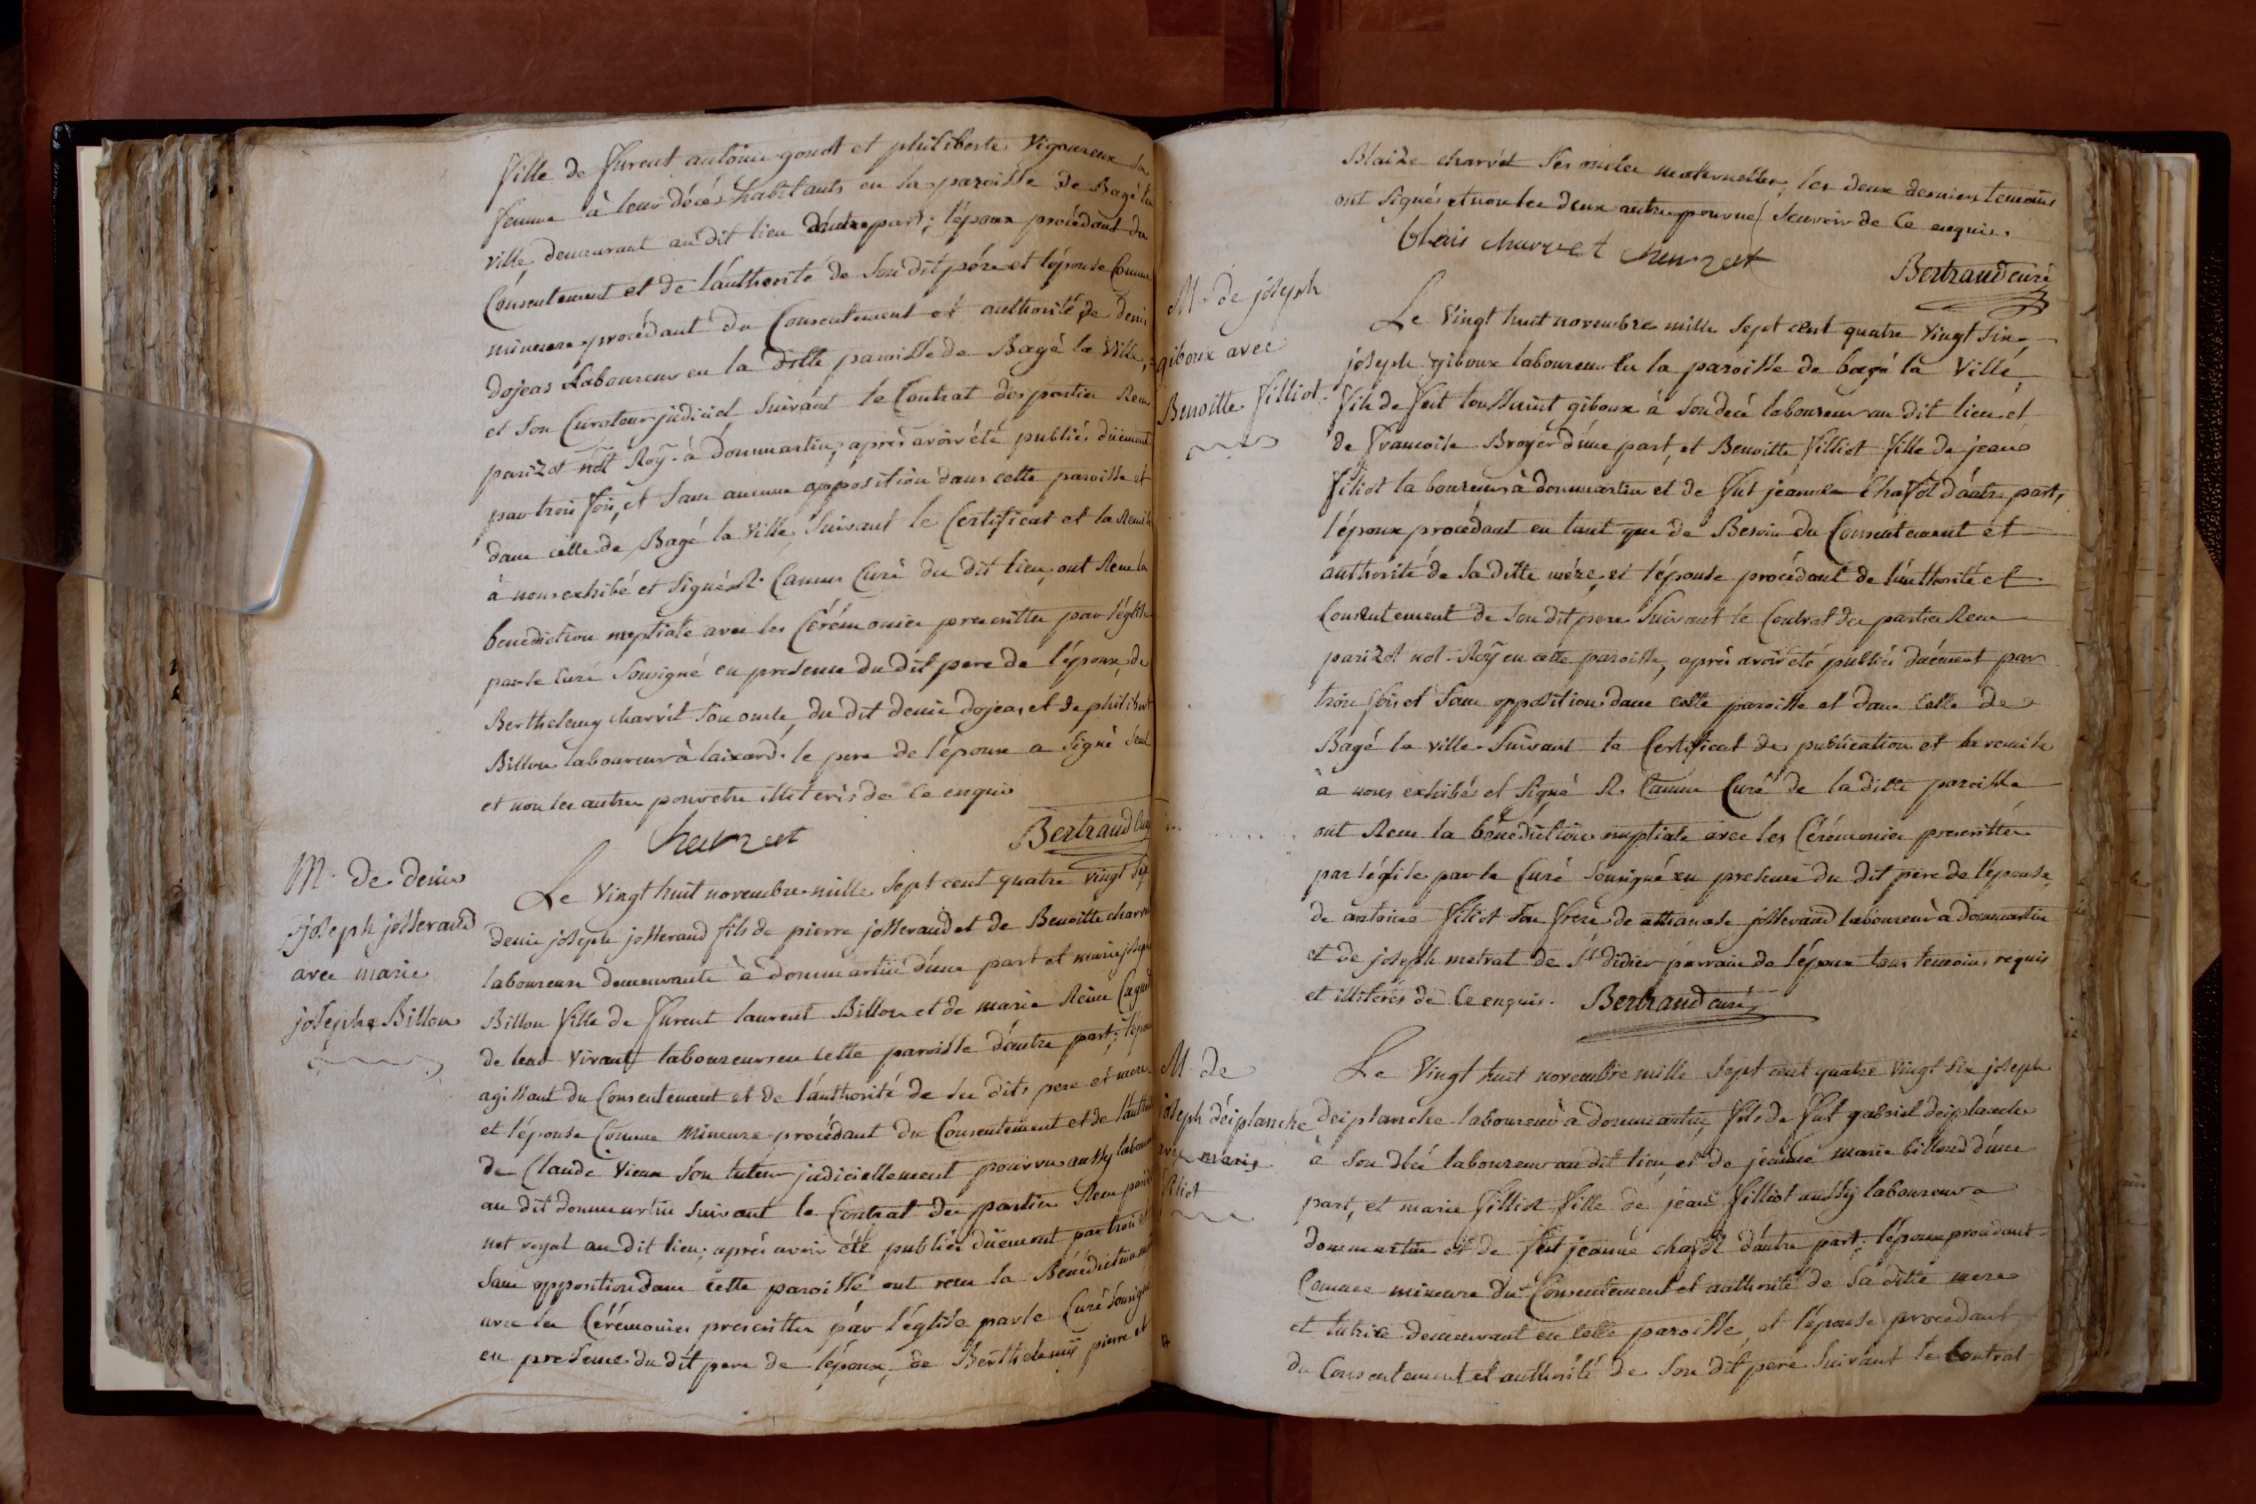 fille de furent antoine gonot et philiberte Vigoureux sa
femme à leur décés habitants en la paroisse de Bagé la
ville demeurant au dit lieu d'autre part; l'époux procédant du
Consentement et de l'authorité de son dit pére et l'épouse Comme
mineure procédant du Consentement et authorité de denis
dojeas Laboureur en la ditte paroisse de Bagé la Ville,
et son Curateur judiciel suivant le Contrat des parties Recu
parizot not Roy. à dommartin, aprés avoir été publiés düement
par trois fois, et sans aucune opposition dans cette paroisse et
dans celle de Bagé la Ville suivant le Certificat et la Remise
à nous exhibé et signé R. Camus Curé du dit lieu, ont Recu la
benediction nuptiale avec les Cérémonies prescrittes par l'église
par le Curé sousigné en presence du dit pere de l'époux, de
Berthelemy charvet son oncle, du dit denis dojeas, et de philibert
Billon laboureur à laixard. le pere de l'époux a signé seul
et non les autres pour etre illiterés de ce enquis
charvet
Bertrand Curé
M. de denis
joseph josserand
avec marie
josephe Billon
Le vingt huit novembre mille sept cent quatre vingt six
denis joseph josserand fils de pierre josserand et de Benoitte charvet
laboureurs demeurants à dommartin d'une part et marie josephe
Billon fille de furent laurent Billon et de marie Reine
de leur vivant laboureurs en cette paroisse d'autre part; l'époux
agissant du Consentement et de l'authorité de ses dits pere et mere
et l'épouse Comme Mineure procédant du Consentement et de l'authorité
de Claude Vieux son tuteur judiciellement pourvu aussy laboureur
au dit dommartin suivant le Contrat des parties Recu parizot
not royal au dit lieu; aprés avoir été publiés düement par trois fois
sans opposition dans cette paroisse ont recu la Bénédiction
avec les Cérémonies prescrittes par l'église par le Curé sousigné
en presence du dit pere de l'époux, de Berthelemy pierre et
Blaize charvet ses oncles maternelles, les deux derniers temoins
ont signés et non les deux autres pour ne scavoir de ce enquis.
blais charvet charvet
Bertrand curé
M. de joseph
giboux avec
Benoitte filliot.
Le vingt huit novembre mille sept cent quatre vingt six
joseph giboux laboureur en la paroisse de bagé la Ville,
fils de feu toussaint giboux à son decé laboureur au dit lieu et
de francoise Broyer d'une part, et Benoitte filliot fille de jean
filiot laboureur à dommartin et de fut jeanne Chafot d'autre part,
l'époux procédant en tant que de Besoin du Consentement et
authorité de sa ditte mére, et l'épouse procédant de l'authorité et
Consentement de son dit pere suivant le Contrat des parties Recu
parizot not. Roy en cette paroisse, aprés avoir été publiés düement par
trois fois et sans opposition dans cette paroisse et dans celle de
Bagé la ville. suivant le Certificat de publication et la remise
à nous exhibés et signé R. Camus Curé de la ditte paroisse
ont Recu la bénédiction nuptiale avec les Cérémonies prescrittes
par l'église par le Curé sousigné en presence du dit pere de l'épouse,
de antoine filiot son frere de athanase josserand laboureur à dommartin
et de joseph metrat de St didier parrain de l'époux tous temoins requis
et illiterés de ce enquis. Bertrand curé
M. de
joseph déiplanche
avec marie
filiot
Le Vingt huit novembre mille sept cent quatre vingt six joseph
deiplanche laboureur à dommartin, fils de fut gabriel deiplanche
à son dcé laboureur au dit lieu, et de jeanne marie billoud d'une
part, et marie filliot fille de jean filliot aussy laboureur a
dommartin et de feut jeanne chafot d'autre part; l'époux procédant
Comme mineure du Consentement et authorité de sa ditte mere
et tutrice demeurant en cette paroisse, et l'épouse procédant
du Consentement et authorité de son dit pere suivant le Contrat